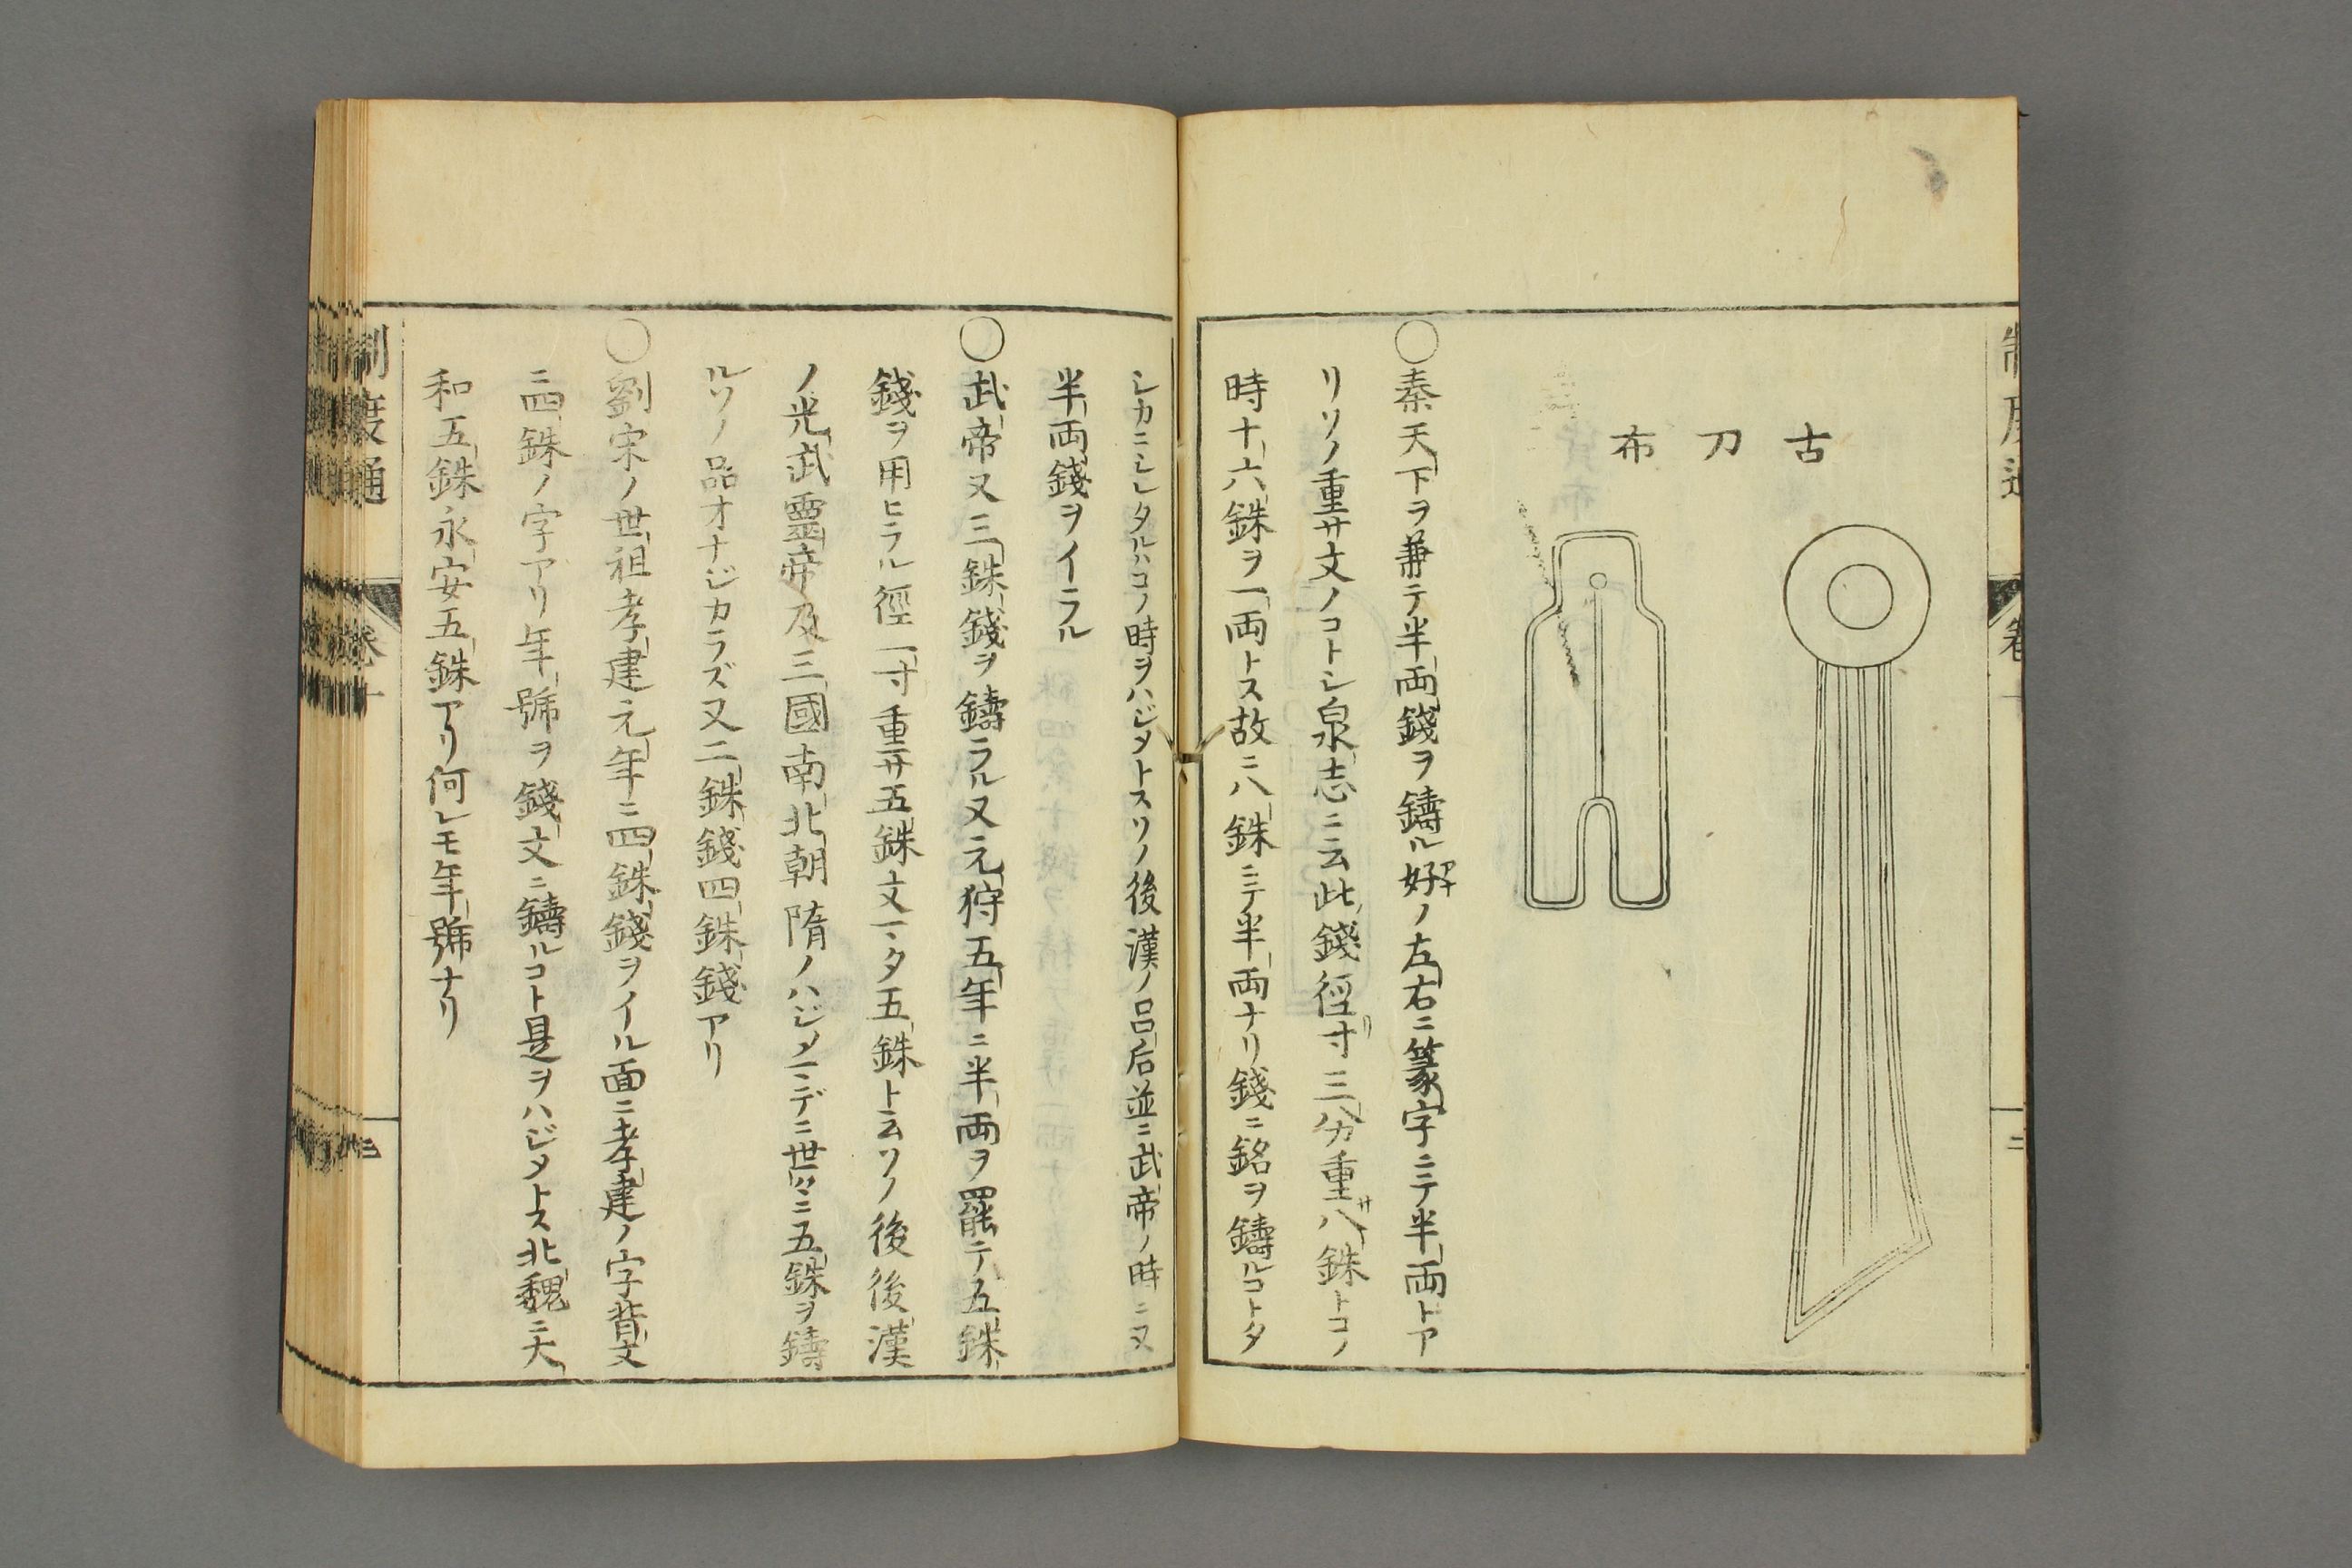 制度通 卷十 二
古刀布
○秦天下ヲ兼テ半両錢ヲ鑄ル好ノ左右ニ篆字ニテ半両トア
リソノ重サ文ノコトシ泉志ニ云此錢徑寸三分重八銖トコノ
時十六銖ヲ一両トス故ニ八銖ニテ半両ナリ錢ニ銘ヲ鑄ルコトタ
シカニシレタルハコノ時ヲハジメトスソノ後漢ノ呂后並ニ武帝ノ時ニ又
半両錢ヲイラル
○武帝又三銖錢ヲ鑄ラル又元狩五年ニ半両ヲ罷テ五銖
錢ヲ用ヒラル徑一寸重サ五銖文マタ五銖ト云ソノ後後漢
ノ光武靈帝及三國南北朝隋ノハジメマデニ世〻ニ五銖ヲ鑄
ルソノ品オナジカラズ又二銖錢四銖錢アリ
○劉宋ノ世祖孝建元年ニ四銖錢ヲイル面ニ孝建ノ字背文
ニ四銖ノ字アリ年號ヲ錢文ニ鑄ルコト是ヲハジメトス北魏ニ大
和五銖永安五銖アリ何レモ年號ナリ
制度通 卷十